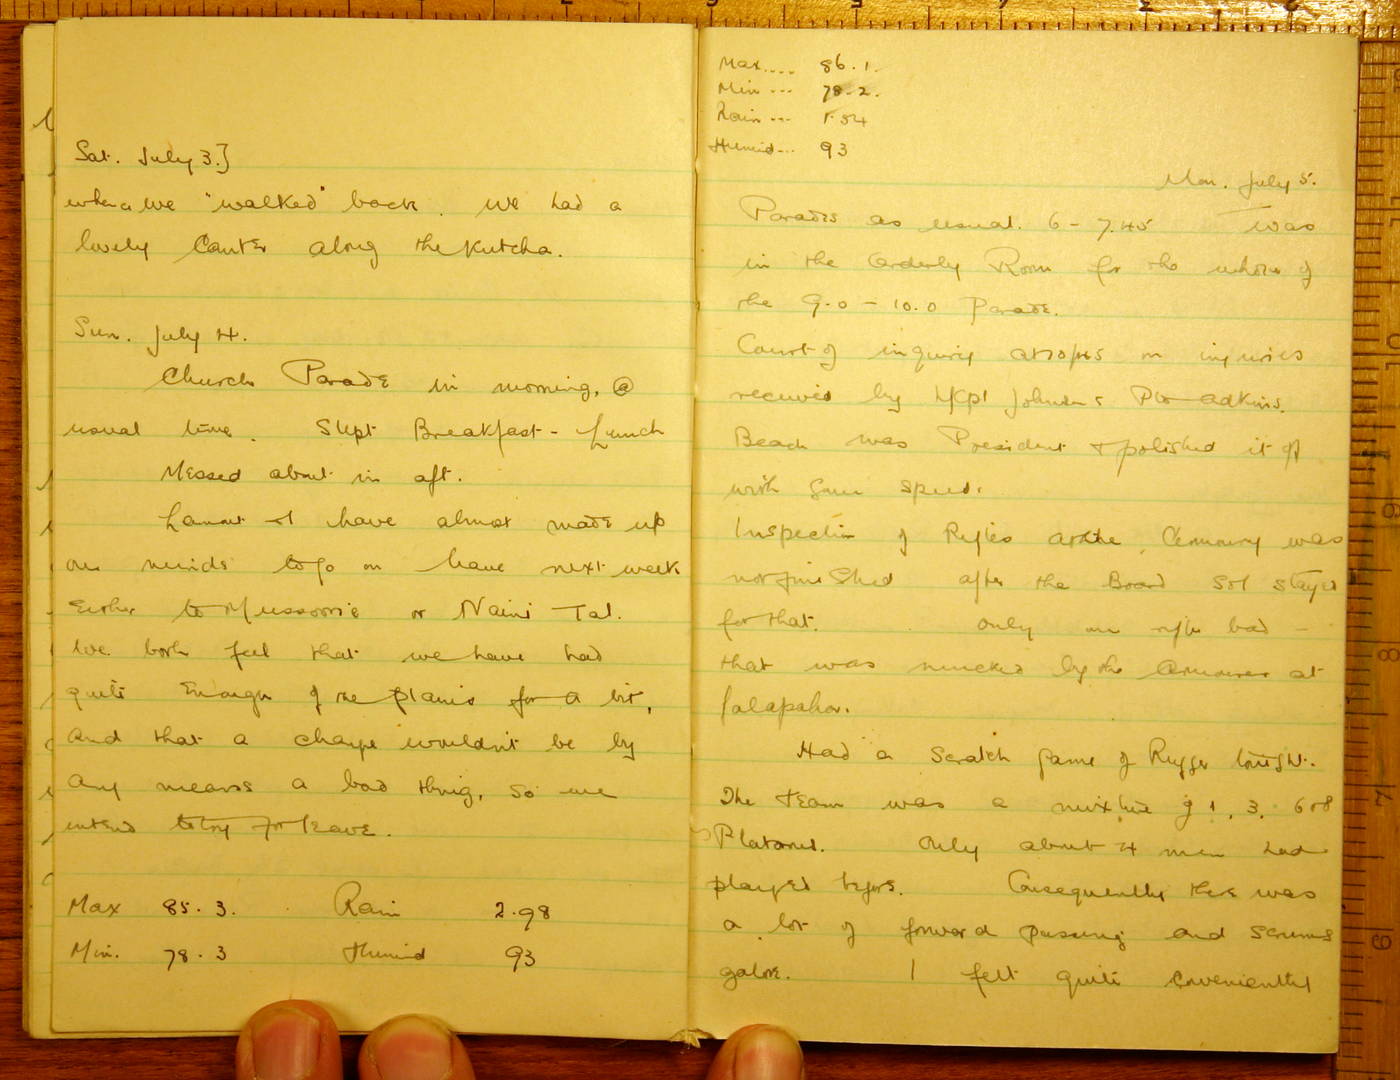 Sat. July 3.]
when we "walked" back. We had a
lovely Canter along the Kutcha.
Sun. July 4.
Church Parade in morning, @
usual time. Slept Breakfast - Lunch
Messed about in aft.
Lamont & I have almost made up
our minds to go on leave next week
Either to Mussoorie or Naini Tal.
We both feel that we have had
quite Enough of the plains for a bit,
and that a change wouldn't be by
any means a bad thing, so we
intend to try for leave.
Max 85.3. Rain 2.98
Min. 78.3 Humid 93
Max.... 86.1.
Min ... 78.2.
Rain ... 1.54
Humid... 93
Mon. July 5.
Parades as usual. 6 - 7.45 I was
in the Orderly Room for the whole of
the 9.0 - 10.0 Parade.
Court of inquiry at on injuries
received by L/Cpl Johnson & Pte Adkins.
Beach was President & polished it off
with some speed.
Inspection of Rifles at the Armoury was
not finished after the Board so I stayed
for that. Only one rifle bad -
that was by the Armourer at
Jalapahar.
Had a Scratch game of Rugger tonight.
The Team was a mixture of 1, 3, 6 & 8
Platoons. Only about 4 men had
played before. Consequently there was
a lot of forward passing and scrums
galore. I felt quite conveniently